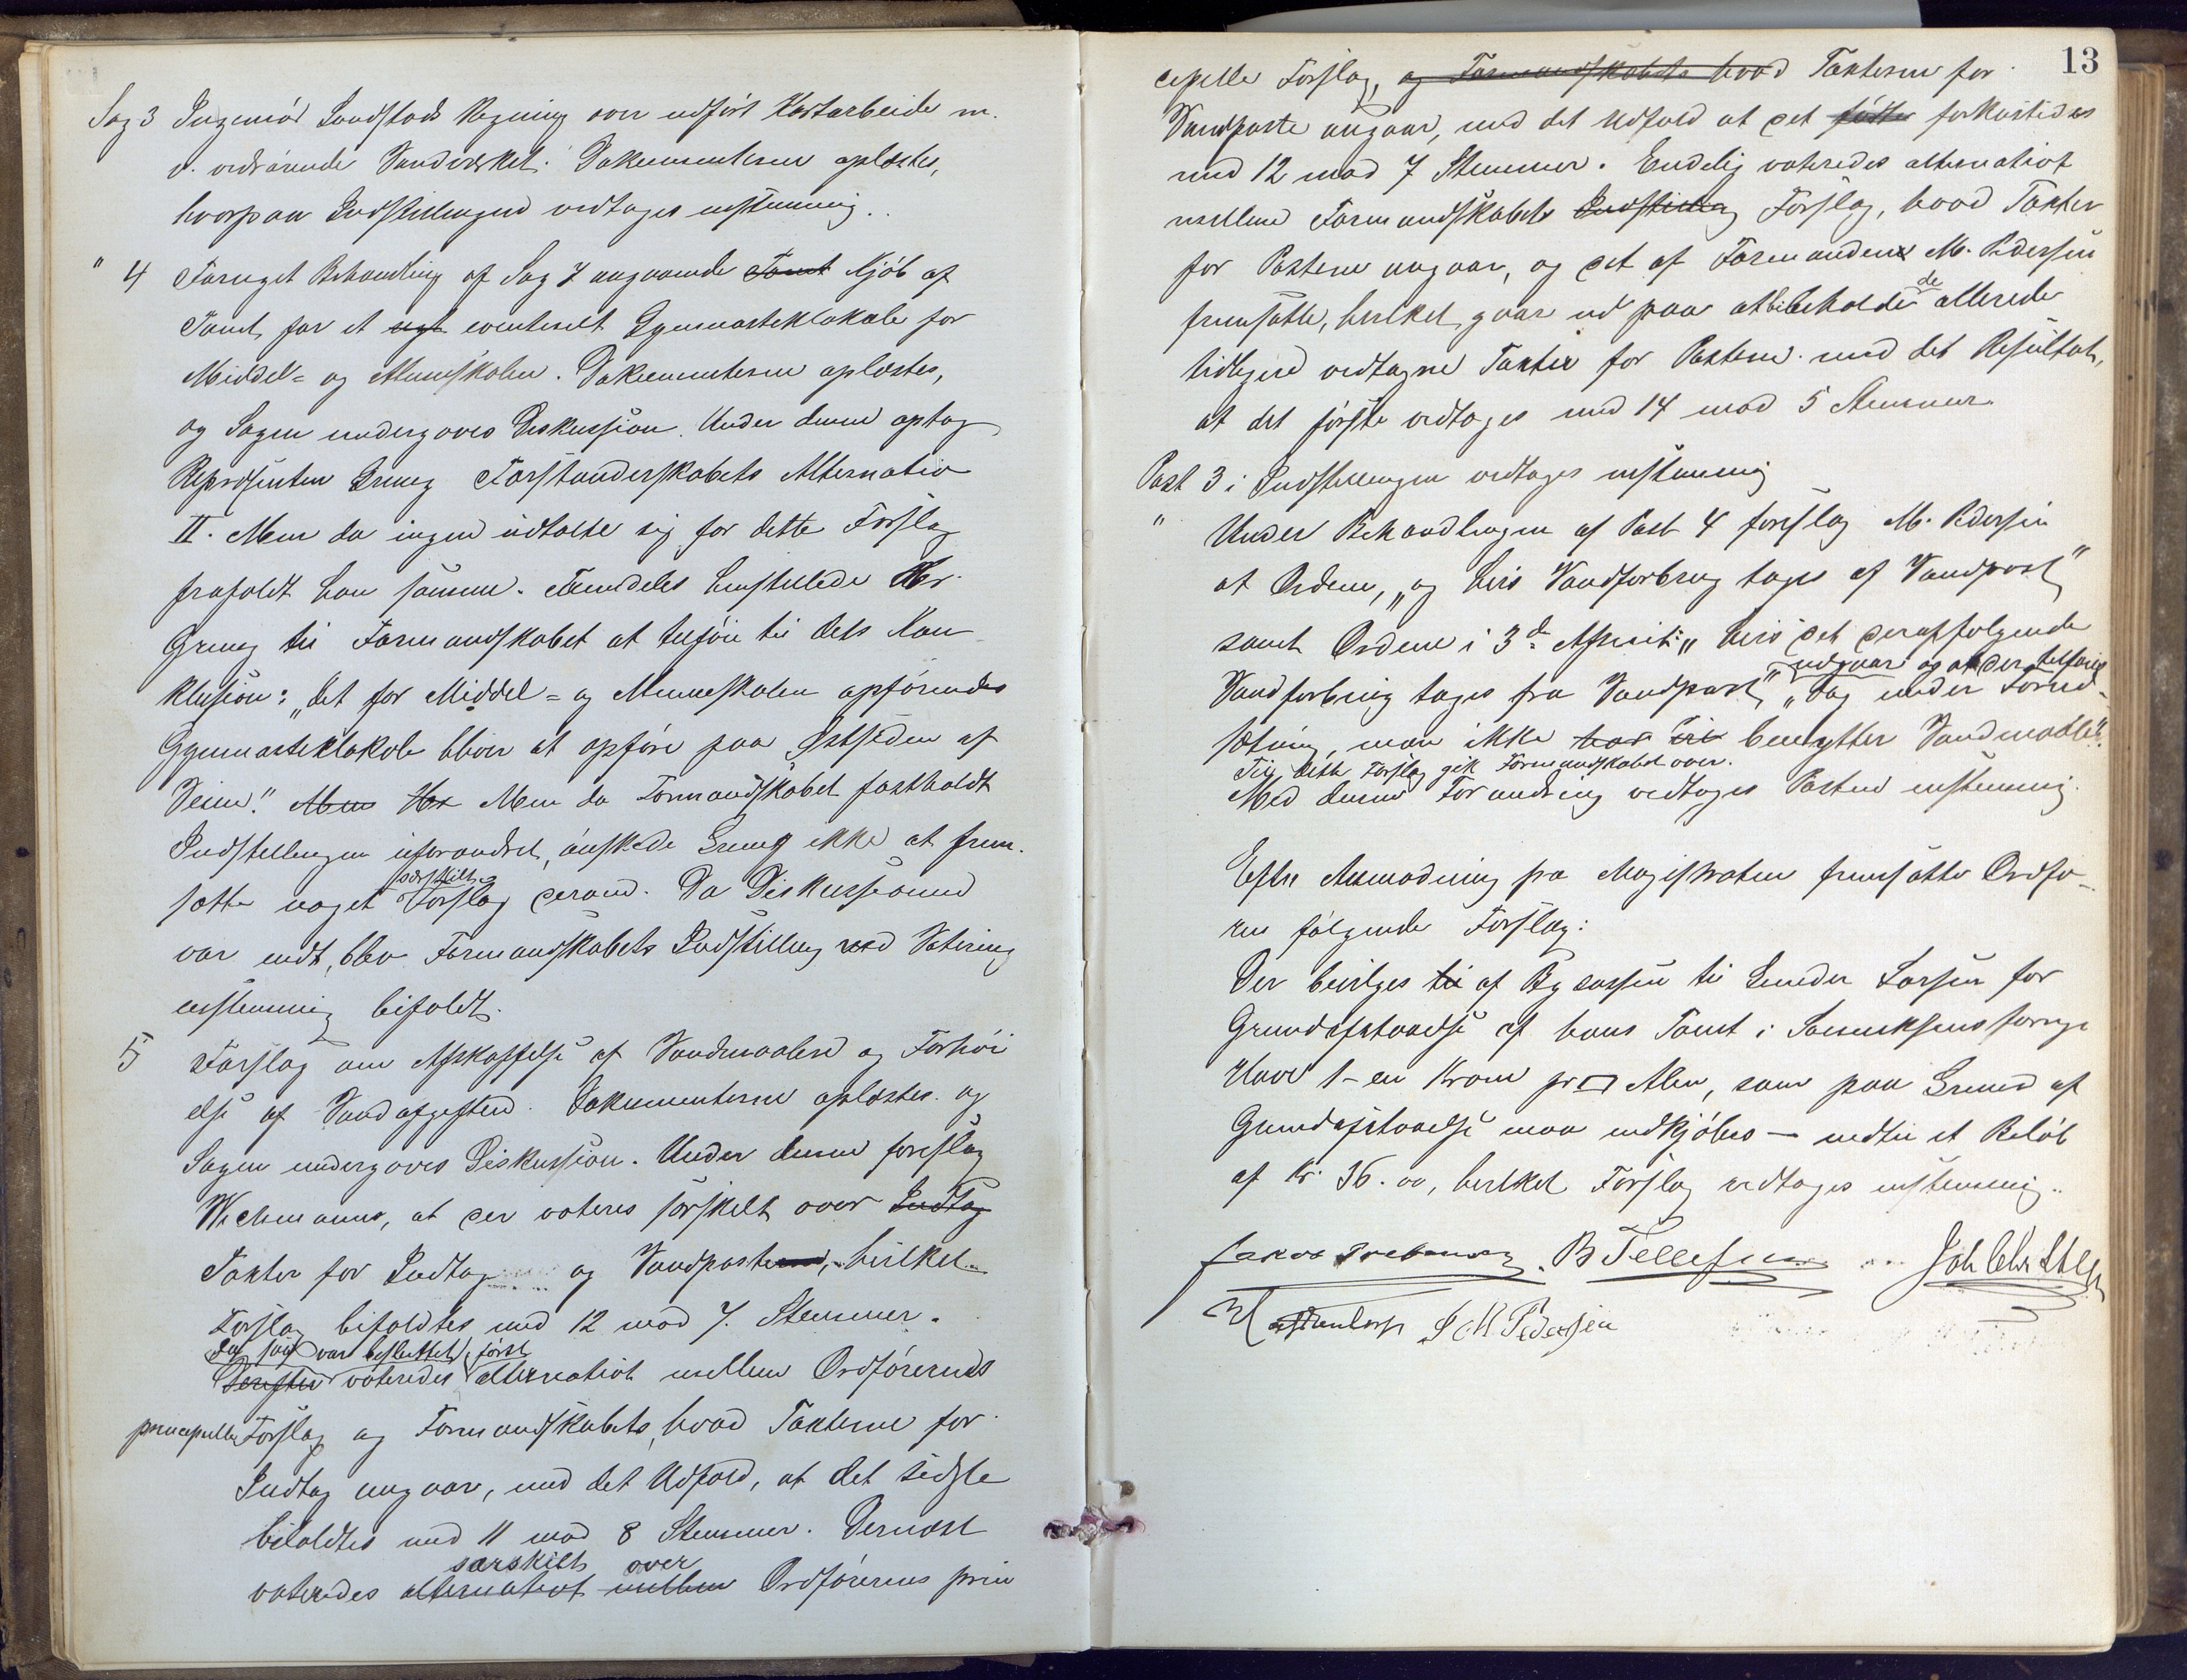 Sag 3 Ingeniør Sandstads Regning over udført Kartarbeide m.
v. vedrørende Vandværket. Dokumenterne oplæstes,
hvorpaa Indstillingen vedtoges enstemmig.
" 4 Fornyet Behandling af Sag 7 angaaende Tomt Kjøb af
Tomt for et nyt eventuelt Gymnastiklokale for
Middel- og Almueskolen. Dokumenterne oplæstes,
og Sagen undergaves Diskussion. Under denne optog
Repræsentan Grung Forstanderskabets Alternativ
II. Men da ingen udtalte sig for dette Forslag
frafaldt han samme. Fremdeles henstillede Hr.
Grung til Formandskabet at tilføie til dets Kon
klusion: "det for Middel- og Almueskolen opførendes
Gymnastiklokale bliver at opføre paa Østsiden af
Veien". Men Hr Men da Formandskabet fastholdt
Indstillingen uforandret, ønskede Grung ikke at frem-
særskilt
sætte noget Forslag derom. Da Diskussionen
var endt, blev Formanskabets Indstilling ved Votering
enstemmig bifaldt.
5 Forslag om Afskaffelse af Vandmaalere og Forhøi
else af Vandafgiften. Dokumenterne oplæstes og
Sagen undergaves Diskussion. Under denne foreslog
Wichmann, at der voteres særskilt over Indtag
Takter for Indtag og Vandposterne, hvilket
Forslag bifaldtes med 12 mod 7 Stemmer.
Da saa var besluttet, først
Derefter voteredes alternativt mellem Ordførerens
principelle Forslag og Formandskabets, hvad Takterne for
Indtag angaar, med det Udfald, at det sidste
bifaldtes med 11 mod 8 Stemmer. Dernæst
særskilt over
voteredes alternativt mellem Ordførerens prin
13
cipelle Forslag, og Formandskabets hvad Takterne for
Vandposte angaar, med det Udfald at det forkastedes
med 12 mod 7 Stemmer. Endelig voteredes alternativt
mellem Formandskabets Indstilling Forslag, hvad Takter
for Posterne angaar, og det af Formanden M. Pedersen
de
fremsatte, hvilket gaar ud paa at bibeholde allerede
tidligere vedtagne Takter for Posterne med det Resultat,
at det første vedtoges med 14 mod 5 Stemmer.
Post 3 i Indstillingen vedtoges enstemmig
" Under Behandlingen af Post 4 foreslog M. Pedersen
at Ordene, "og hvis Vandforbrug tages af Vandpost"
samt Ordene i 3d. Afsnit: "hvis det derpaafølgende
udgaar og at der tilføies
Vandforbrug tages fra Vandpost", "dog under Forud-
sætning, man ikke har benytter Vandmaaler".
Til dette Forslag gik Formandskabet over.
Med denne Forandring vedtoges Posten enstemmig.
Efter Anmodning fra Magistraten fremsatte Ordfø-
ren følgende Forslag:
Der bevilges til af Bykassen til Larsen for
Grundafstaaelse af hans Tomt i
Have 1 - en Krone pr □ Alen, som paa Grund af
Grundafstaaelse maa indkjøbes — indtil et Beløb
af Kr. 36.00, hvilket Forslag vedtoges enstemmig.
B Tellefsen
S M Pedersen